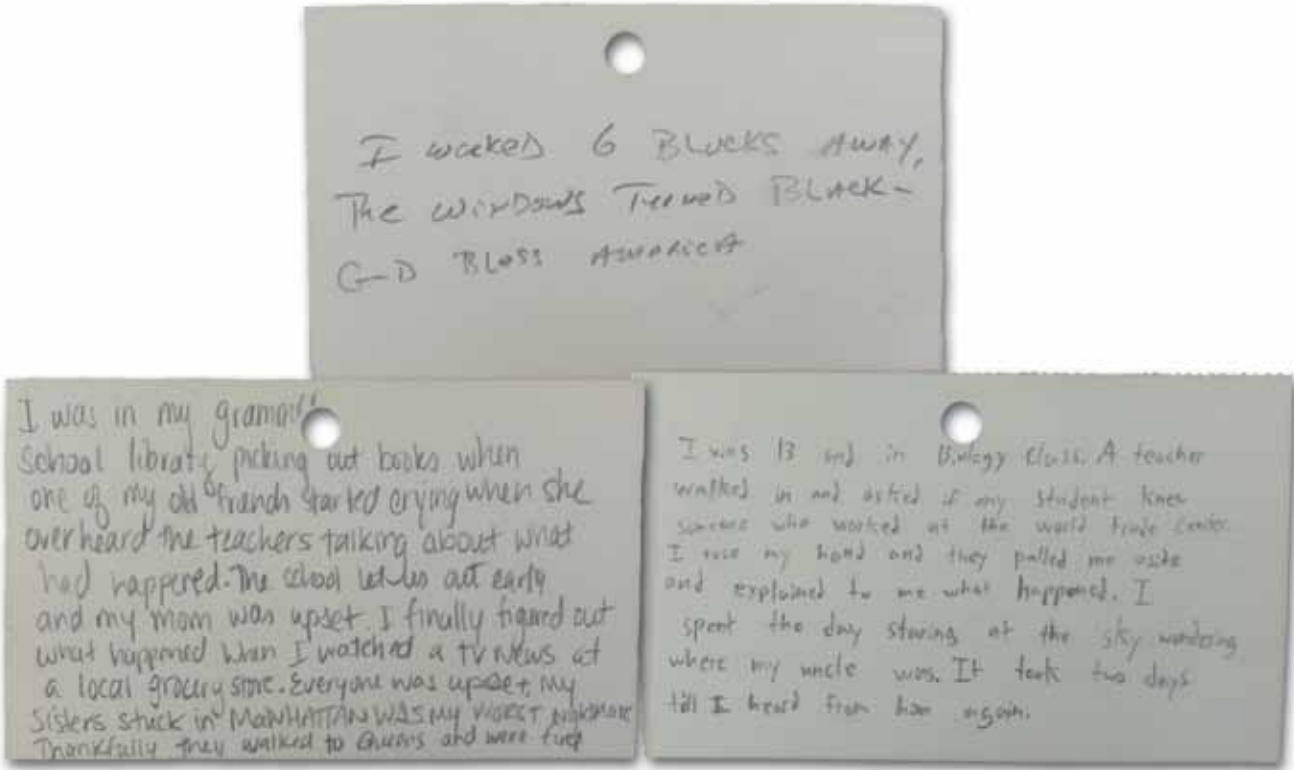 I worked 6 Blocks Away,
The windows Turned Black-
G-D Bless America
I was in my
school library picking out books when
one of my old friends started crying when she
overheard the teachers talking about what
had happened. The school let us out early
and my mom was upset. I finally figured out
what happened when I watched a TV News at
a local grocery store. Everyone was upset, my
sisters stuck in MANHATTAN WAS MY WORST NIGHTMARE
Thankfully they walked to Queens and were
I was 13 and in Biology Class. A teacher
walked in and asked if any student knew
someone who worked at the world trade center.
I rose my hand and they pulled me aside
and explained to me what happened. I
spent the day staring at the sky wondering
where my uncle was. It took two days
till I heard from him again.